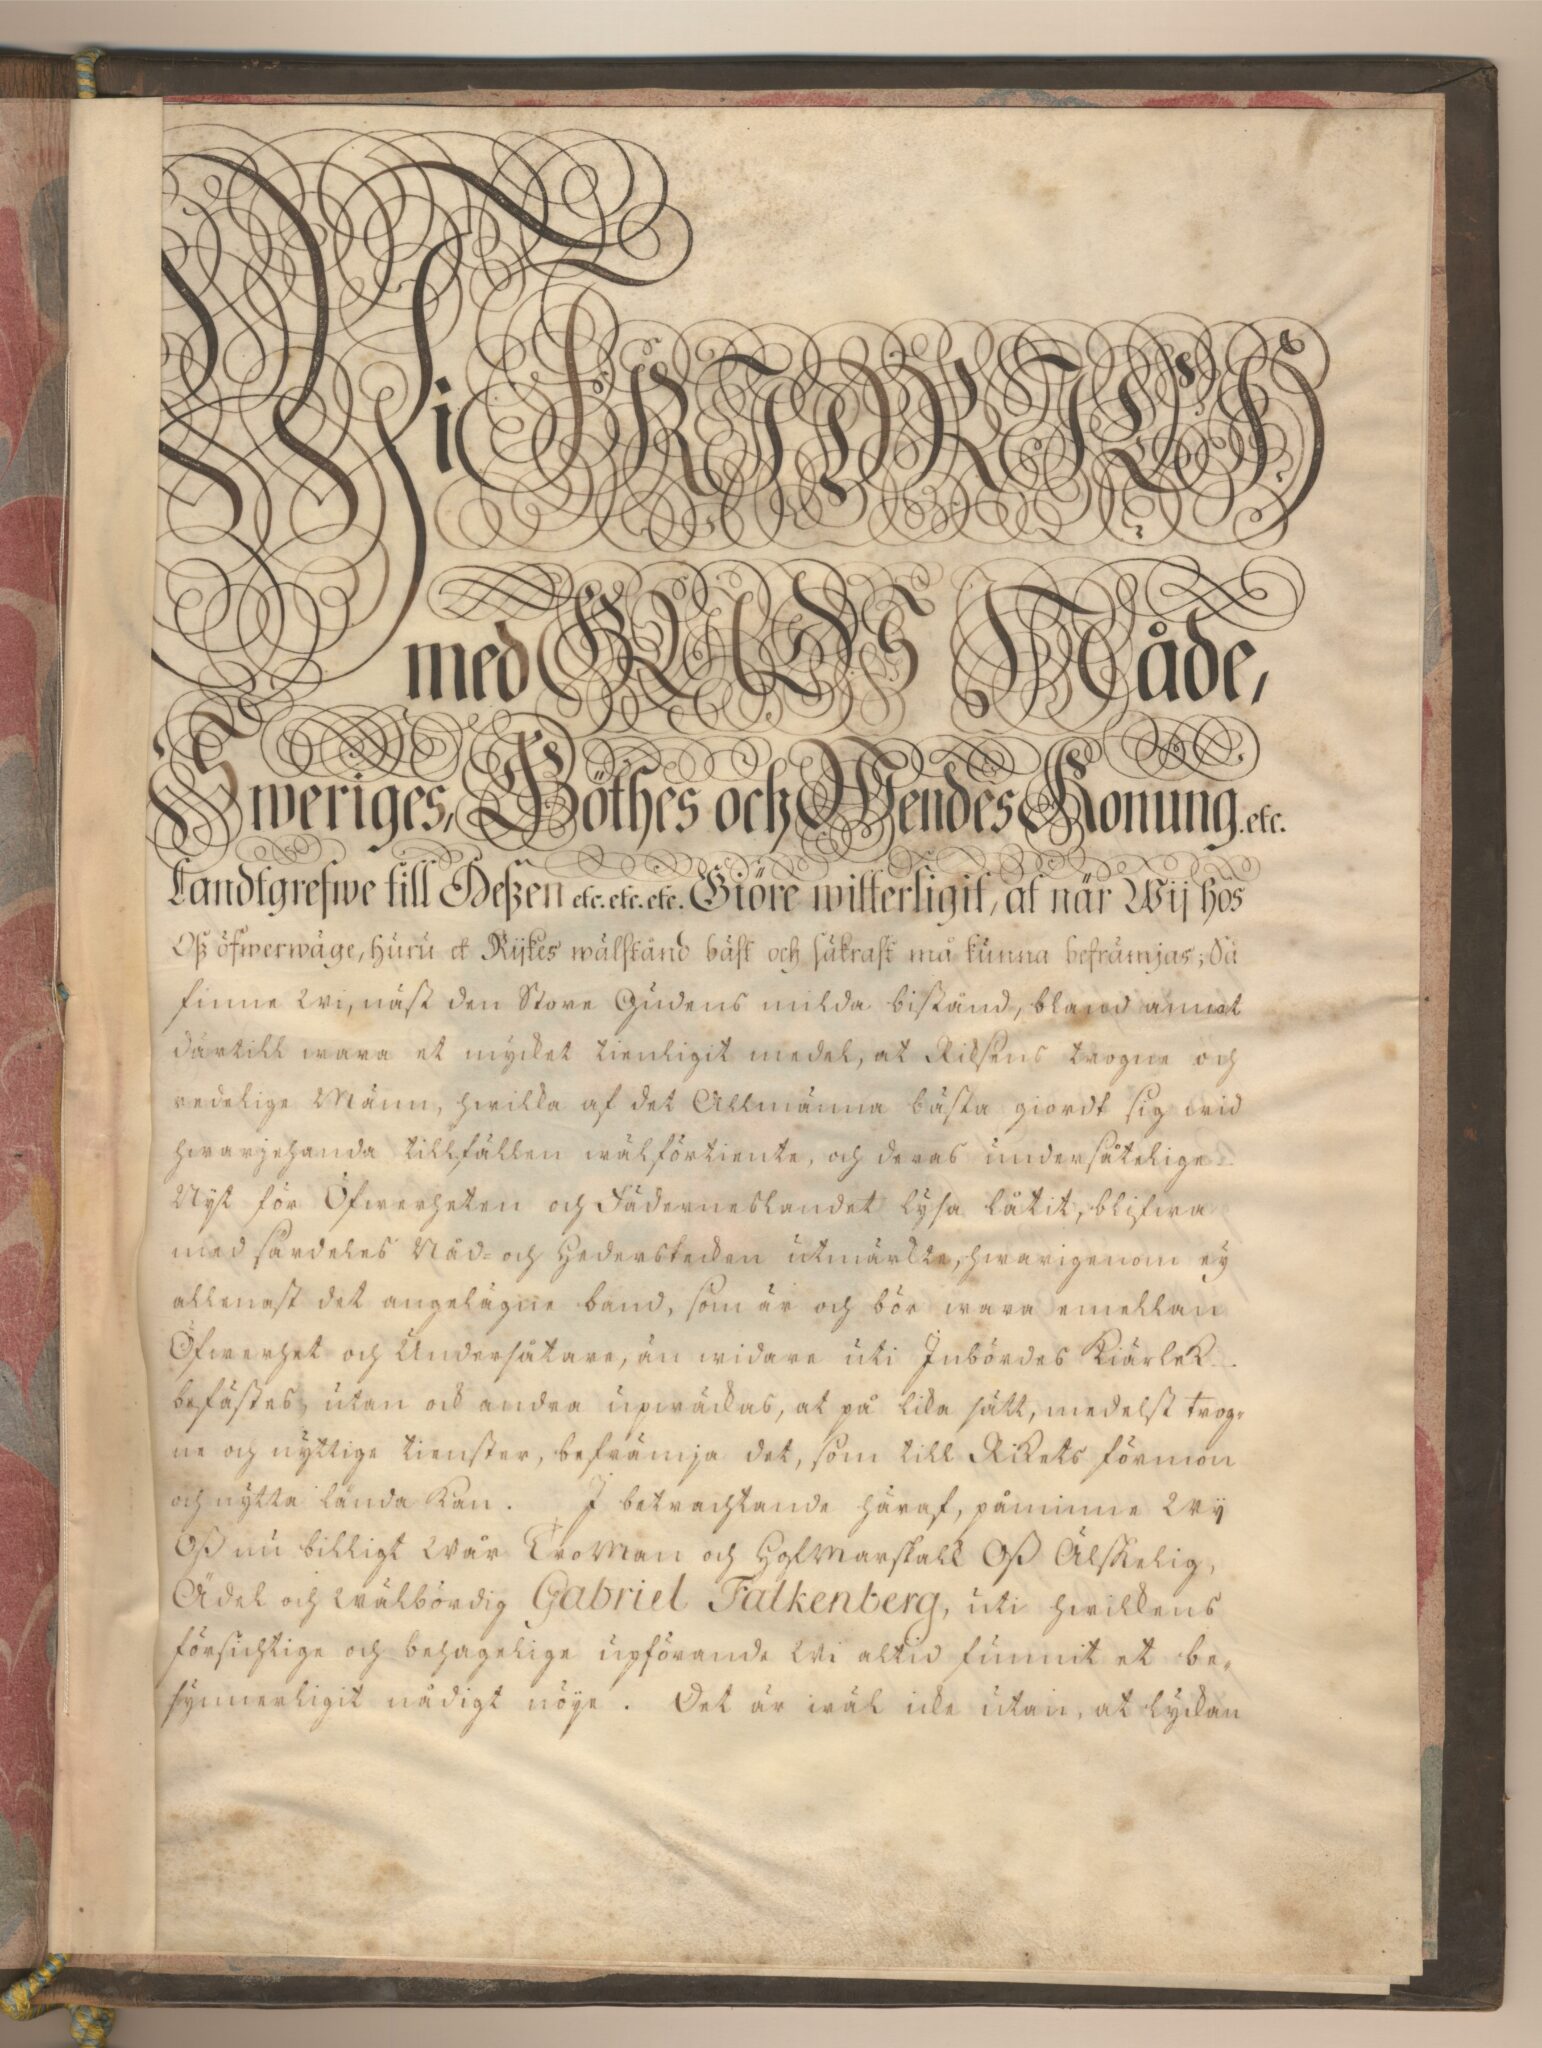 Wi FRIEDRICH
med GUDS Nåde,
Sweriges, Göthes och Wendes Konung .etc.
Landtgrefwe till Heßen etc. etc. etc. Giöre witterligit, at när Wij hos
Oß öfwerwäge, huru et Rijkes wälstånd bäst och säkrast må kunna befrämjas; Då
finne Wi, näst den Store Gudens milda bistånd, bland annat
därtill wara et mycket tienligit medel, at Riksens trogne och
redelige Männ, hwilka af det Allmänna bästa giordt sig wid
hwarjehanda tillfällen wälförtiente, och deras undersåtelige
Nyt för Öfwerheten och Fäderneslandet lysa låtit, blifwa
med särdeles Nåd- och Hederstecken utmärkte, hwarigenom ey
allenast det angelägne band, som är och bör wara emellan
Öfwerhet och Undersåtare, än widare uti Inbördes Kiärlek
befästes, utan ock andra upwäckas, at på lika sätt, medelst trog-
ne och nyttige tienster, befrämja det, som till Rikets förmon
och nytta lända kan. I betrachtande häraf, påminne Wy
Oß nu billigt Wår TroMan och HofMarskalk Oß Älskelig,
Ädel och Wälbördig Gabriel Falkenberg, uti hwilkens
försichtige och behagelige upförande Wi altid funnit et be-
synnerligit nådigt nöye. Det är wäl icke utan, at lyckan